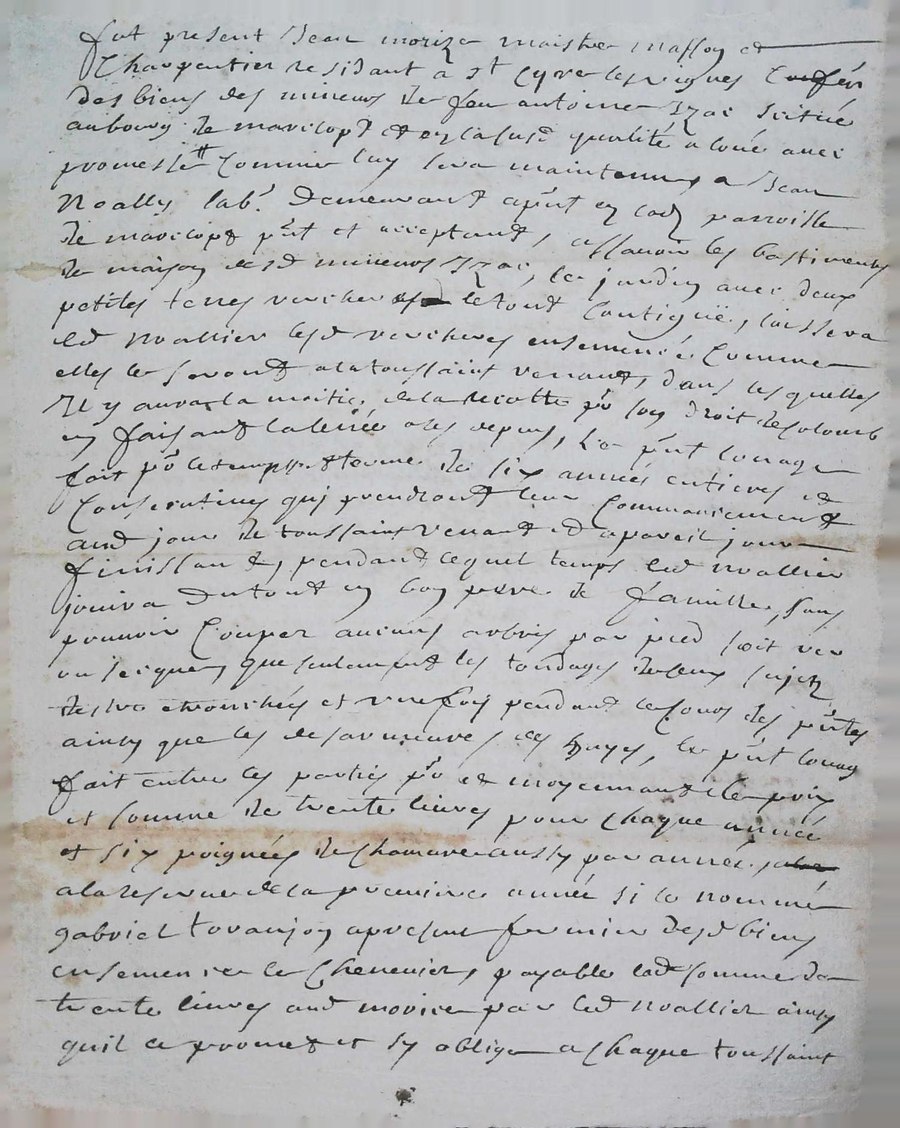 fut present Jean morize maistre masson et
Charpentier residant a st Cyre les vignes
des biens des mineurs de feu antoine Izac scitué
aubourg de marclopt et en lad qualité a loué avec
promesse Comme luy sera maintenu a Jean
Noally lab. Demeurant a pñt en lad parroisse
de marclopt pñt et acceptant, assavoir les bastiments
de maison desd mineurs Izac, le jardin avec deux
petites terres vercheres le tout Contiguë, laissera
led Noallier lesd vercheres ensemencé Comme
elles le seront a la toussaint venant, dans lesquelles
Il y aura la moitié de la recolte pr son droit de Colonb
en faisant la levée a ses depens, Le pñt louage
fait pr le temps et terme de six années entieres et
Consecutives qui prendront leur Commancement
aud jour de toussaint venant et a pareil jour
finissant, pendant lequel temps led Noallier
jouira du tout en bon pere de famille, sans
pouvoir Couper aucuns arbres par pied soit ver
ou secque, que seulement les tondages de ceux sujetz
destre et une fois pendant le Cours des pñtes
ainsy que les des hayes, le pñt louag
fait entre les parties pr et moyennant le prix
et somme de trente livres pour chaque année
et six poignées de Chamvre aussy par année
a la reserve de la premiere année si le nommé
gabriel toranjon a present fermier desd biens
ensemence le Chenevier, payable lad somme de
trente livres aud morize par led Noallier ainsy
quil le promet et sy oblige a chaque toussaint